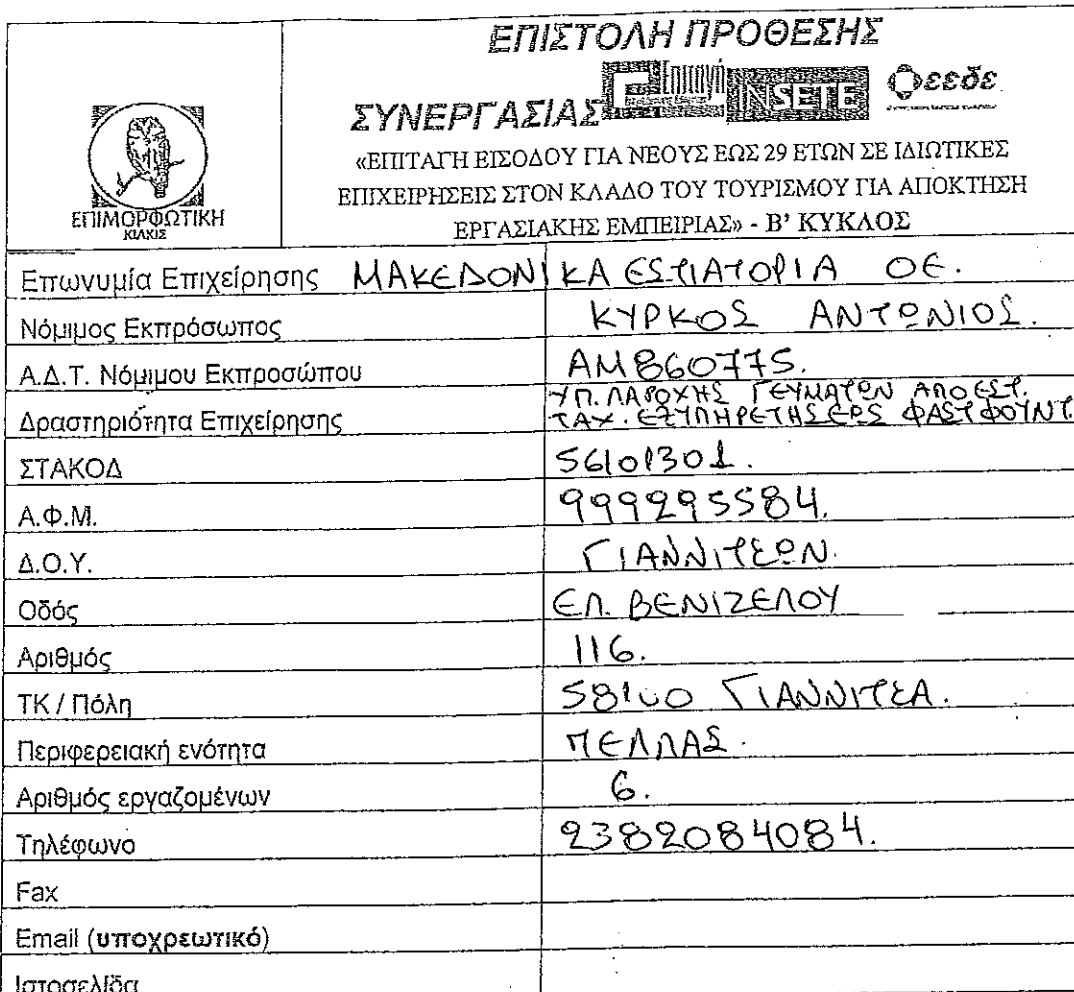 ΕΠΙΣΤΟΛΗ ΠΡΟΘΕΣΗΣ
ΣΥΝΕΡΓΑΣΙΑΣ INSETE εεδε
«ΕΠΙΤΑΓΗ ΕΙΣΟΔΟΥ ΓΙΑ ΝΕΟΥΣ ΕΩΣ 29 ΕΤΩΝ ΣΕ ΙΔΙΩΤΙΚΕΣ
ΕΠΙΧΕΙΡΗΣΕΙΣ ΣΤΟΝ ΚΛΑΔΟ ΤΟΥ ΤΟΥΡΙΣΜΟΥ ΓΙΑ ΑΠΟΚΤΗΣΗ
ΕΡΓΑΣΙΑΚΗΣ ΕΜΠΕΙΡΙΑΣ» - Β' ΚΥΚΛΟΣ
ΕΠΙΜΟΡΦΩΤΙΚΗ
ΚΙΛΚΙΣ
Επωνυμία Επιχείρησης ΜΑΚΕΔΟΝΙΚΑ ΕΣΤΙΑΤΟΡΙΑ ΟΕ.
Νόμιμος Εκπρόσωπος ΚΥΡΚΟΣ ΑΝΤΩΝΙΟΣ.
Α.Δ.Τ. Νόμιμου Εκπροσώπου ΑΜ860775.
Δραστηριότητα Επιχείρησης ΥΠ. ΠΑΡΟΧΗΣ ΓΕΥΜΑΤΩΝ ΑΠΟ ΕΣΤ.
ΤΑΧ. ΕΞΥΠΗΡΕΤΗΣΕΩΣ ΦΑΣΤ ΦΟΥΝΤ.
ΣΤΑΚΟΔ 56101301.
Α.Φ.Μ. 999295584.
Δ.Ο.Υ. ΓΙΑΝΝΙΤΣΩΝ.
Οδός ΕΛ. ΒΕΝΙΖΕΛΟΥ
Αριθμός 116.
ΤΚ / Πόλη 58100 ΓΙΑΝΝΙΤΣΑ.
Περιφερειακή ενότητα ΠΕΛΛΑΣ.
Αριθμός εργαζομένων 6.
Τηλέφωνο 2382084084.
Fax
Email (υποχρεωτικό)
Ιστοσελίδα